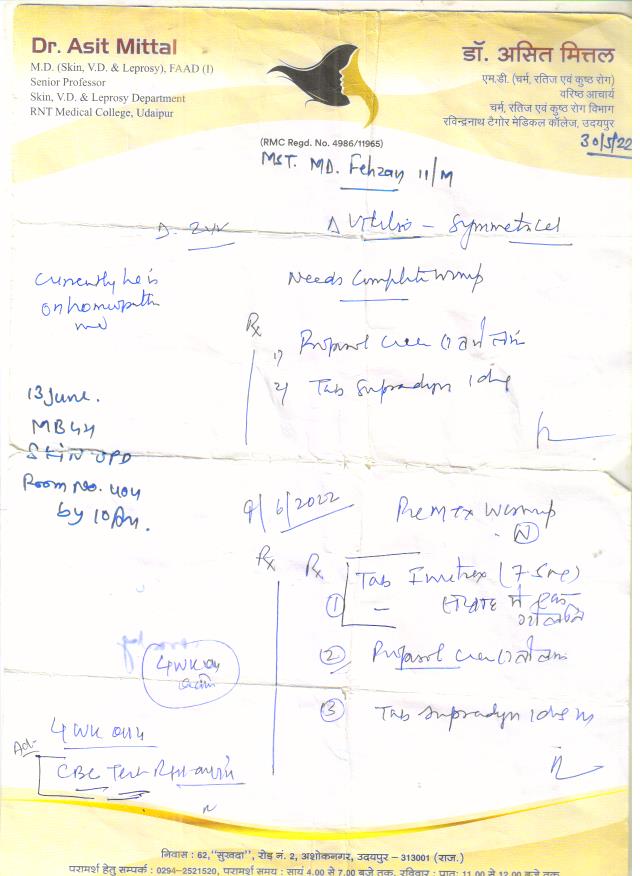 Dr. Asit Mittal
M.D. (Skin, V.D. & Leprosy), FAAD (I)
Senior Professor
Skin, V.D. & Leprosy Department
RNT Medical College, Udaipur
डॉ. असित मित्तल
एम.डी. (चर्म, रतिज एवं कुष्ठ रोग)
वरिष्ठ आचार्य
चर्म, रतिज एवं कुष्ठ रोग विभाग
रविन्द्रनाथ टैगोर मेडिकल कॉलेज, उदयपुर
30/5/22
(RMC Regd. No. 4986/11965)
MST. MD. Fehzan 11/M
Δ Vitiligo - Symmetrical
Currently he is
on homeopathic
Needs Complete Workup
Rx
1)
2) Tab Supradyn 1 daily
13 June.
MB 44
SKIN OPD
Room No. 404
by 10 Am.
9/6/2022
Pre MTX Workup
N
Rx
Rx
① Tab Imutrex (7.5mg)
सप्ताह में एक
②
③ Tab Supradyn 1 daily
4 WK बाद
4 WK बाद
Adv
CBC Test
निवास : 62,"सुखदा", रोड़ नं. 2, अशोकनगर, उदयपुर - 313001 (राज.)
परामर्श हेतु सम्पर्क : 0294-2521520, परामर्श समय : सायं 4.00 से 7.00 बजे तक, रविवार : प्रातः 11.00 से 12.00 बजे तक